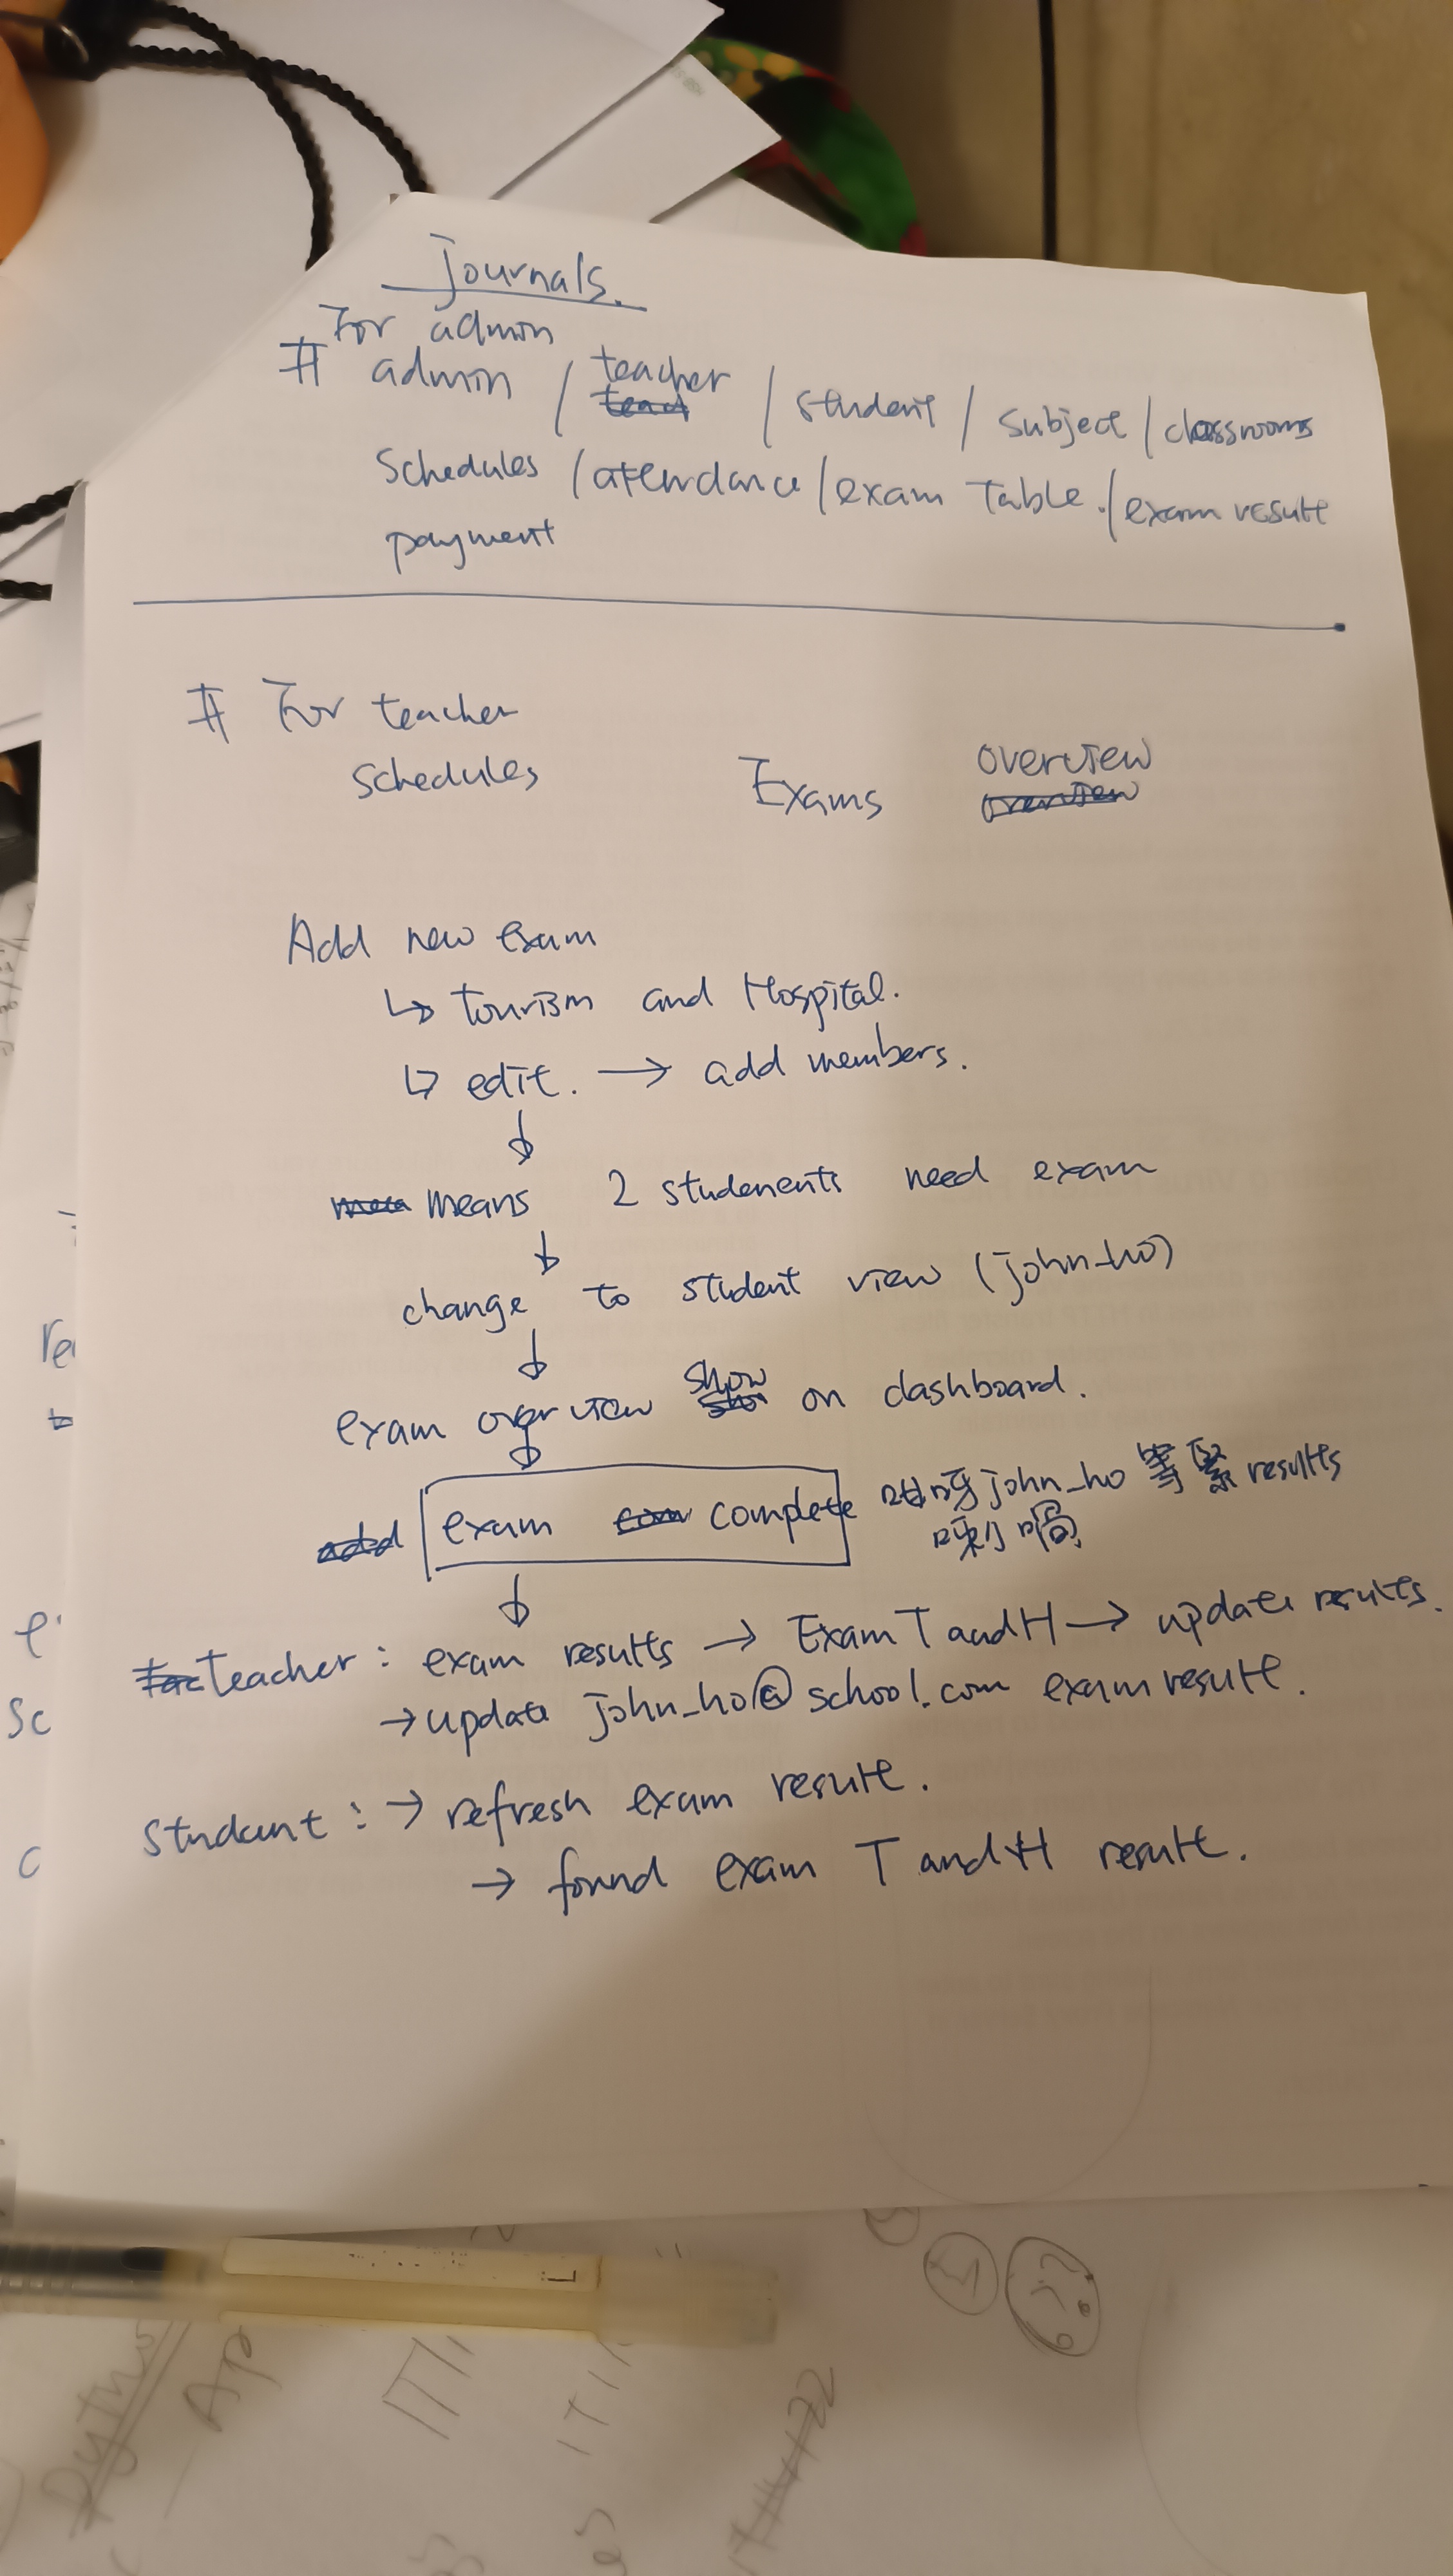 Journals.
For admin
# admin / teacher / student / subject / classrooms
Schedules / attendance / exam Table. / exam result
payment
# For teacher
schedules Exams overview
Add new exam
↳ Tourism and Hospital.
↳ edit. → add members.
↓
means 2 studenents need exam
↓
change to student view (john_ho)
↓
exam overview show on dashboard.
↓
exam complete 咁呀john_ho 等緊 results
㗎喇喎
↓
Teacher : exam results → Exam T and H → update results.
→ update john_ho@school.com exam result.
Student : → refresh exam result.
→ found exam T and H result.